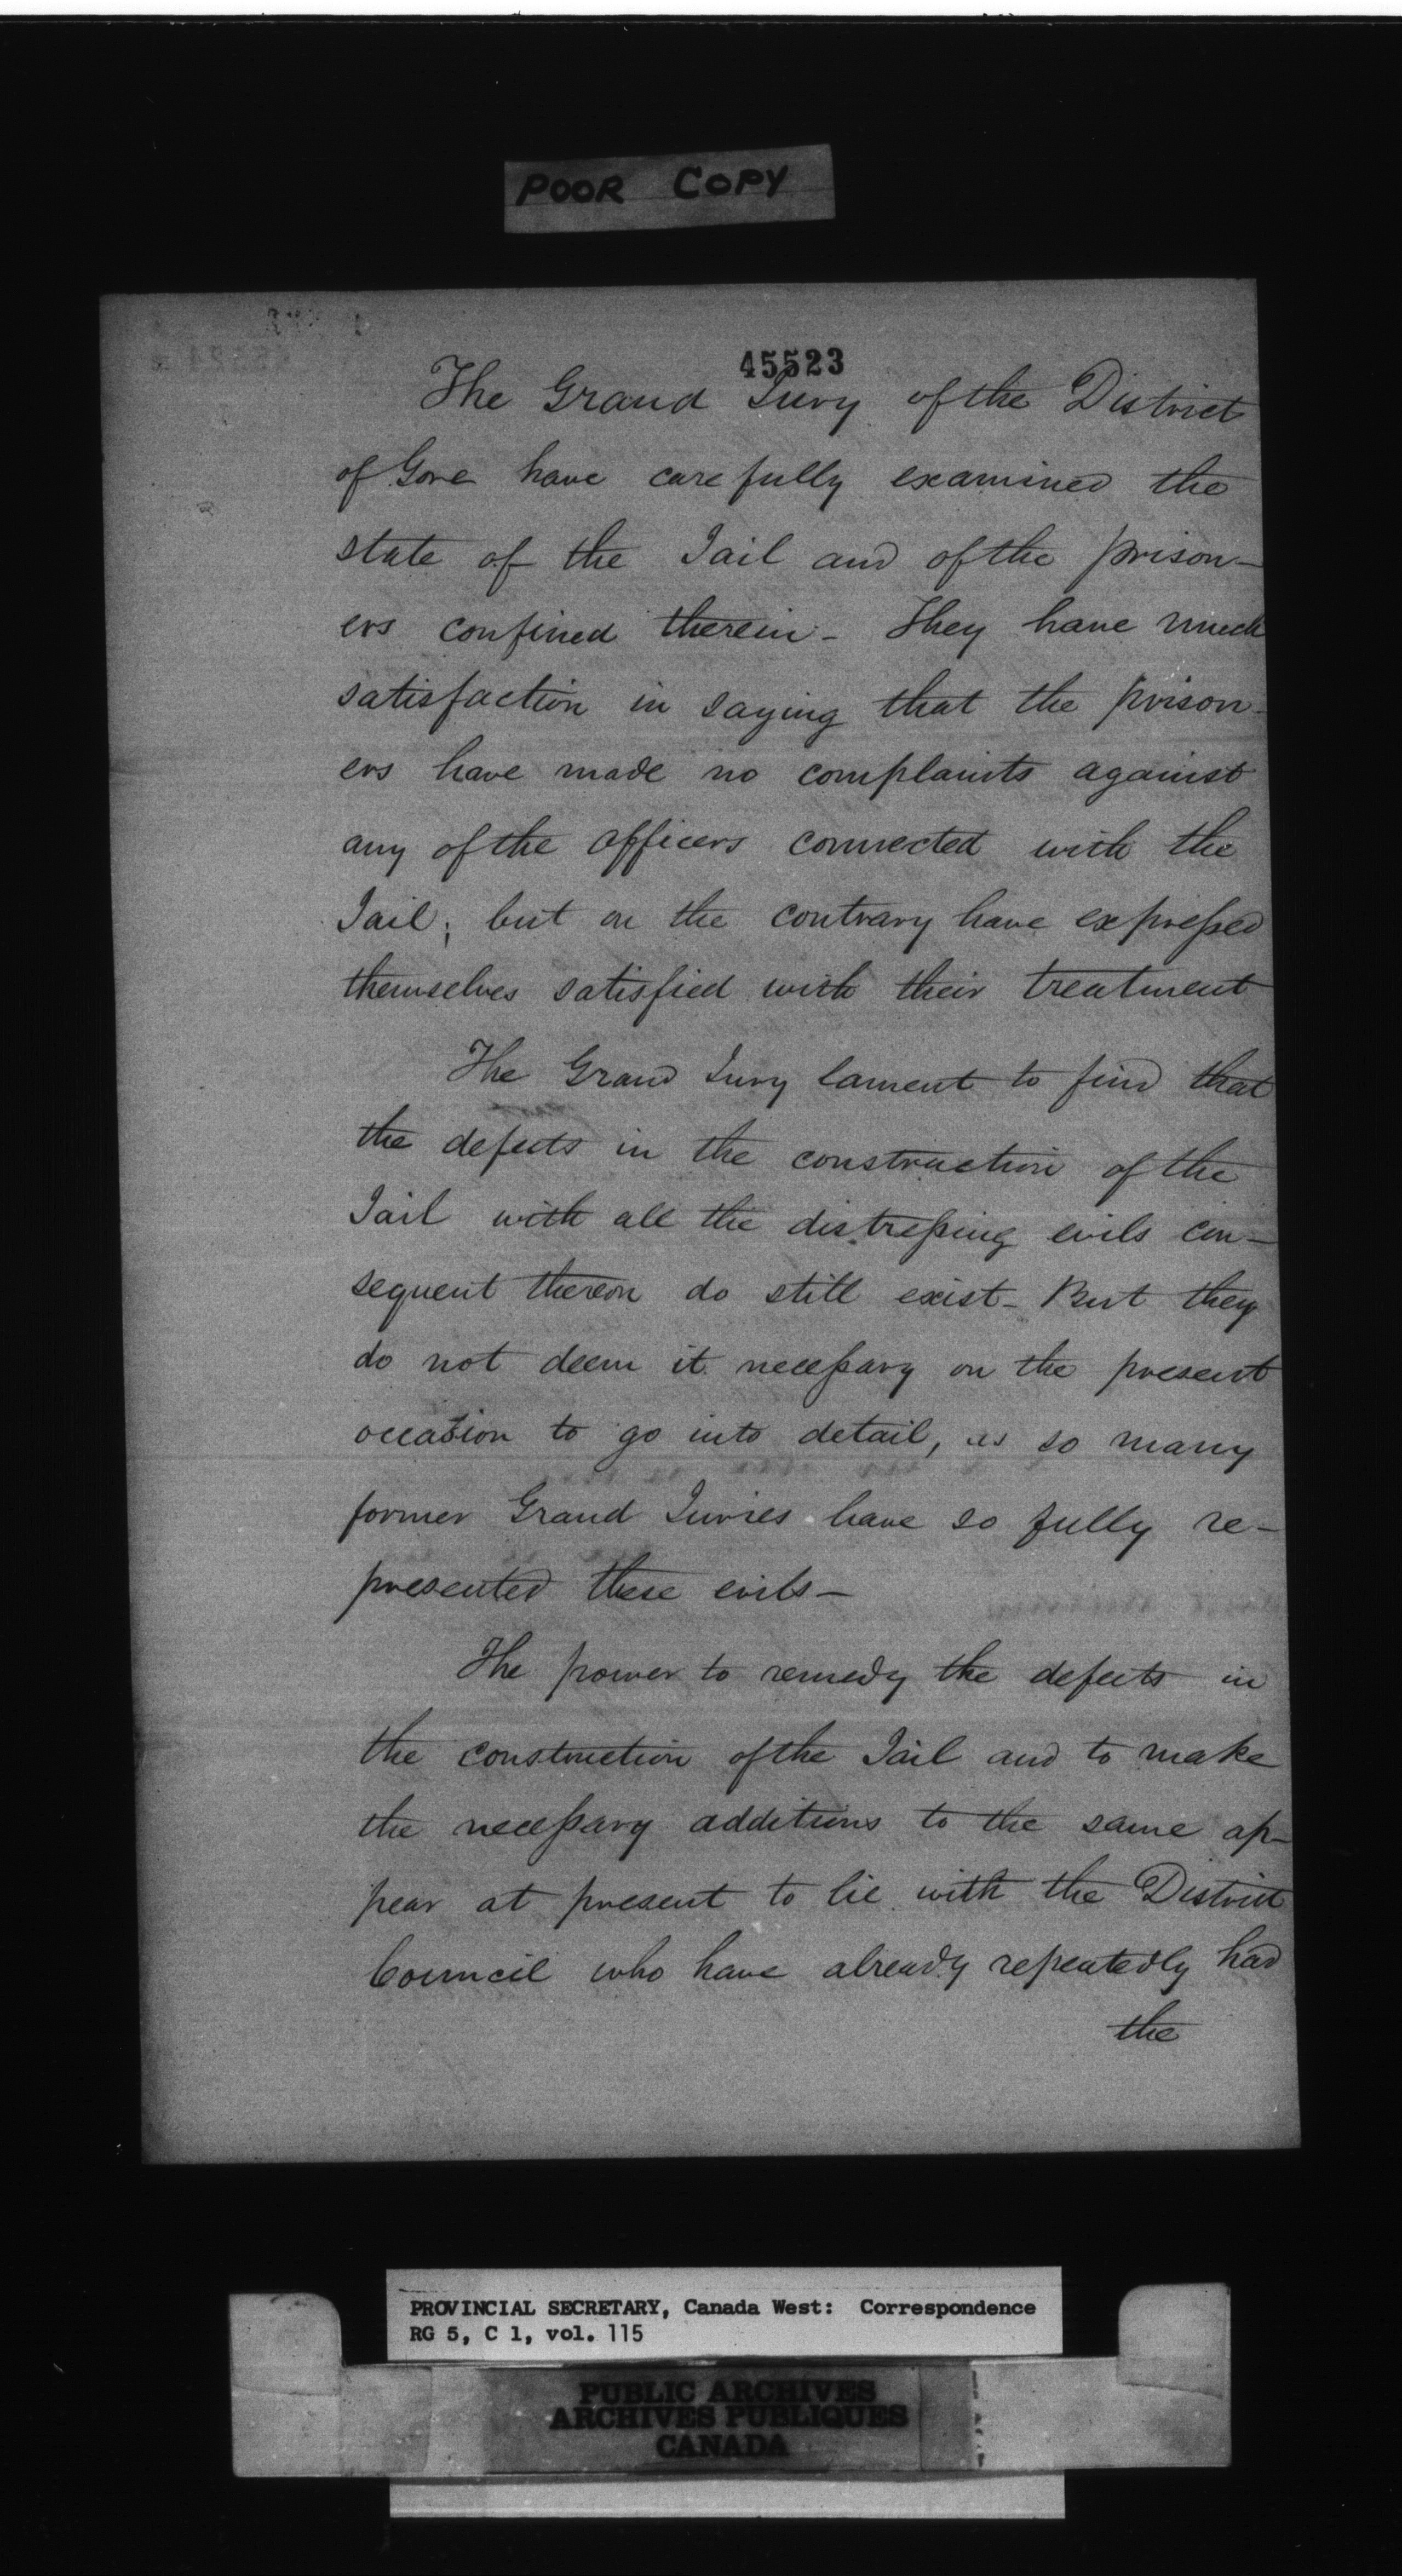 POOR COPY
45523
The Grand Jury of the District
of Gore have carefully examined the
state of the Jail and of the prison-
ers confined therein - They have much
satisfaction in saying that the prison-
ers have made no complaints against
any of the officers connected with the
Jail; but on the contrary have expressed
themselves satisfied with their treatment
The Grand Jury lament to find that
the defects in the construction of the
Jail with all the distressing evils con-
sequent thereon do still exist - But they
do not deem it necessary on the present
occasion to go into detail, as so many
former Grand Juries have so fully re-
presented these evils -
The power to remedy the defects in
the construction of the Jail and to make
the necessary additions to the same ap-
pear at present to lie with the District
Council who have already repeatedly had
the
PROVINCIAL SECRETARY, Canada West: Correspondence
RG 5, C 1, vol. 115
PUBLIC ARCHIVES
ARCHIVES PUBLIQUES
CANADA